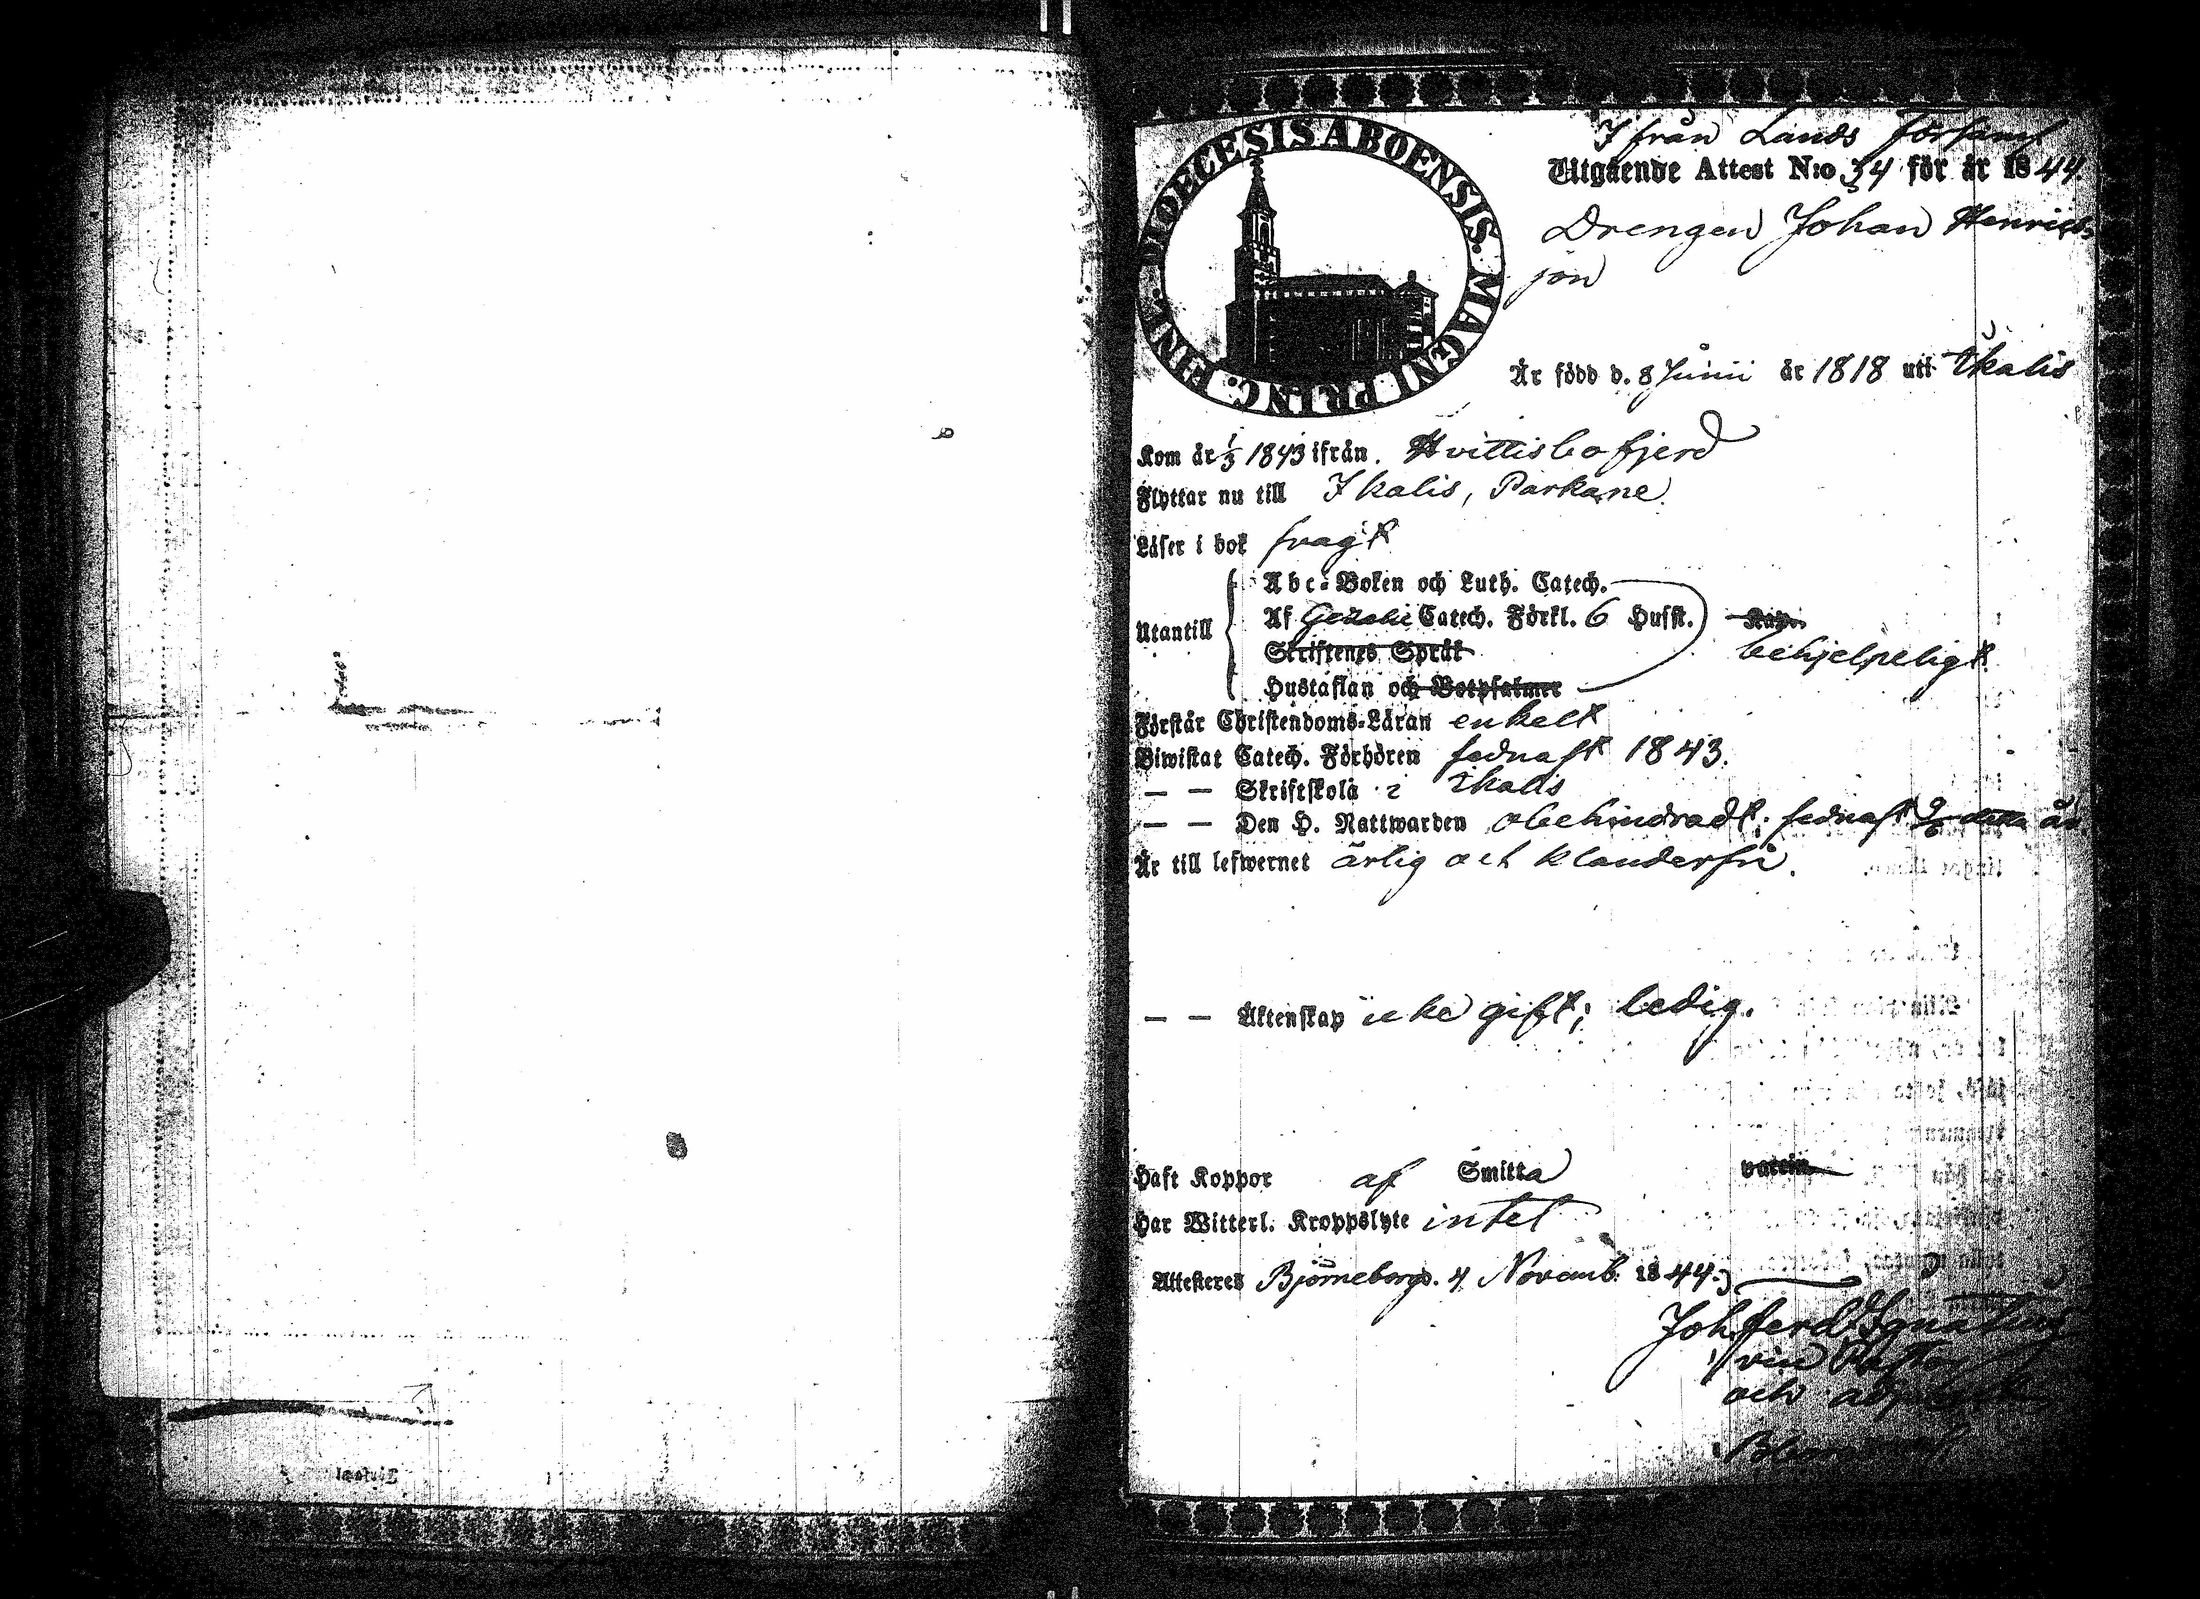 DIOECESIS ABOENSIS. MAGNI PRINC. FINL.
Ifrån Lands Församl
Utgående Attest N:o 34 för år 1844
Drengen Johan Henrics-
son
Är född d. 8 Junii år 1818 uti Ikalis
Kom år 1/3 1843 ifrån. Hvittisbofjerd
Flyttar nu till Ikalis, Parkane.
Läser i bok svagt
Utantill
Abc-Boken och Luth. Catech.
Af Gezelii Catech. Förkl. 6 Hufst.
Skriftenes Språk
behjelpeligt
Hustaflan och Botpsalmer
Förstår Christendoms-Läran enkelt
Biwistat Catech. Förhören sednast 1843.
— — Skriftskola i Ikalis
— — Den H. Nattwarden obehindradt; sednast detta år
Är till lefwernet ärlig och klanderfri.
— — Äktenskap icke gift; ledig.
Haft Koppor af Smitta vaccin.
Har Witterl. Kroppslyte intet
Attesteres Björneborg d. 4 Novemb. 1844.
Joh. Ferd. Ignatius
vice Pastor
och